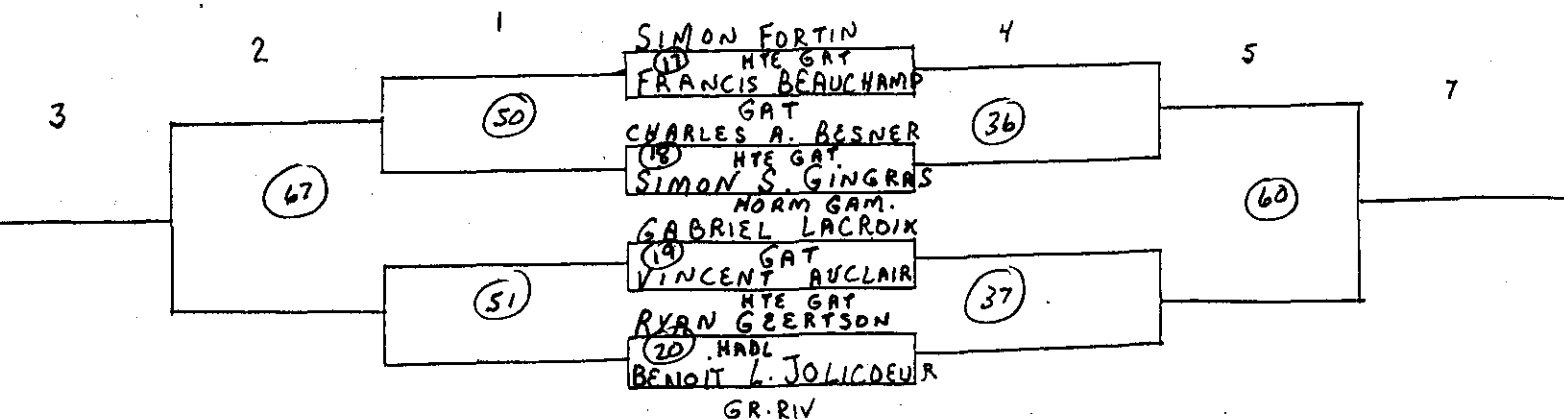 1
4
2
5
3
7
SIMON FORTIN
17 HTE GAT
FRANCIS BEAUCHAMP
GAT
50
36
CHARLES A. BESNER
18 HTE GAT.
SIMON S. GINGRAS
NORM GAM.
67
60
GABRIEL LACROIX
19 GAT
VINCENT AUCLAIR
HTE GAT
51
37
RYAN GEERTSON
20 .HADL
BENOIT L. JOLICOEUR
GR.RIV